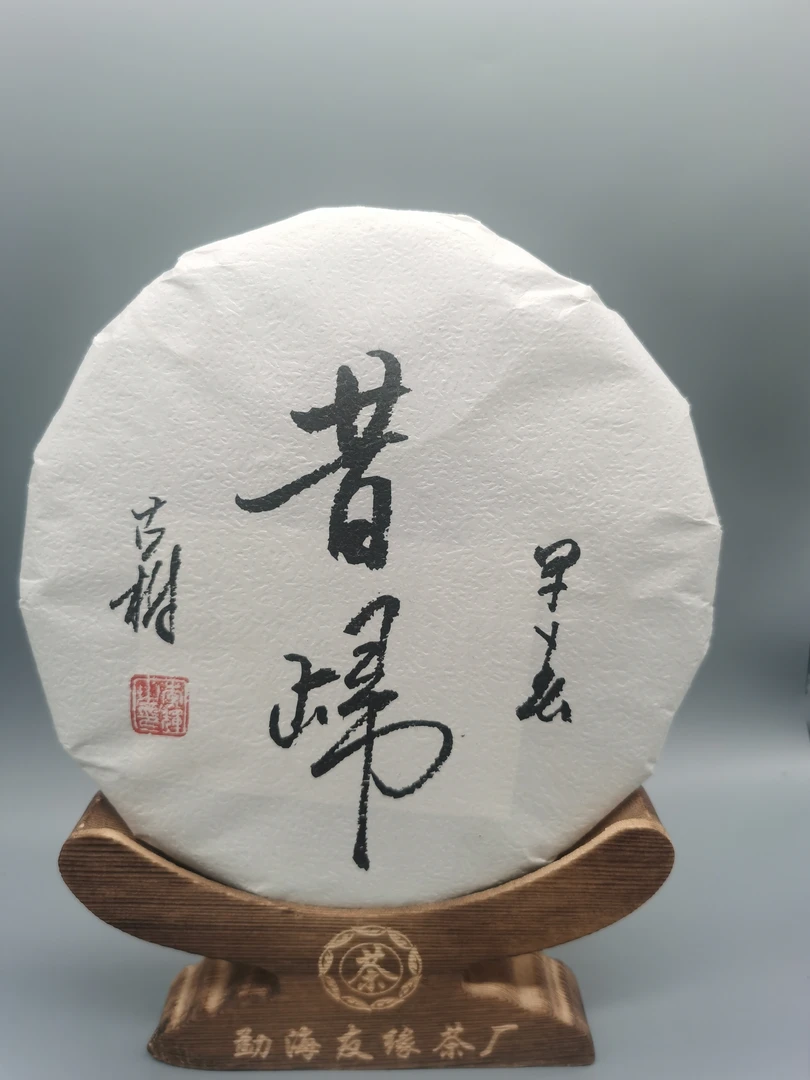 早春
昔歸
古樹
茶
勐海友缘茶厂